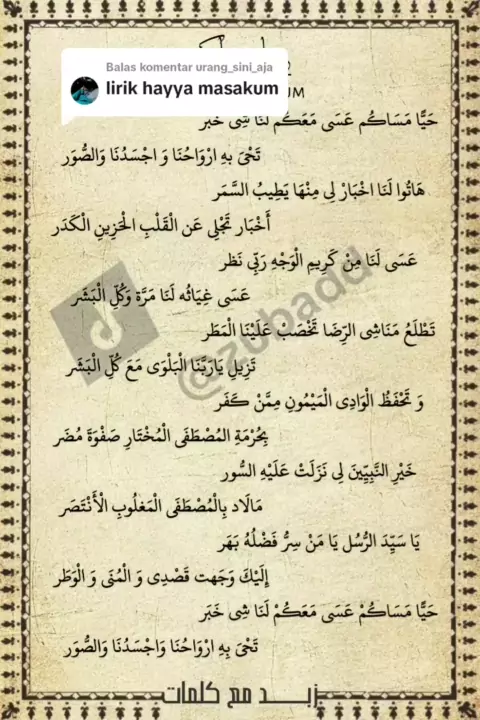 Balas komentar urang_sini_aja
lirik hayya masakum
حَيًّا مَسَاكُم عَسَى مَعَكُم لَنَا شِى خَبَر
تَحْىَ بِهِ ارْوَاحُنَا وَ اجْسَدُنَا وَالصُّوَر
هَاتُوا لَنَا اخْبَارْ لِى مِنْهَا يَطِيبُ السَّمَر
أَخْبَار تَجْلِى عَن الْقَلْبِ الْحَزِينِ الْكَدَر
عَسَى لَنَا مِنْ كَرِيمِ الْوَجْهِ رَبِّى نَظَر
عَسَى غِيَاثُه لَنَا مَرَّة وَكُلِّ الْبَشَر
تَطْلَعُ مَنَاشِى الرِّضَا تَخْصَبْ عَلَيْنَا الْمَطَر
تَزِيلِ يَارَبَّنَا الْبَلْوَى مَعَ كُلِّ الْبَشَر
وَ تَحْفَظُ الْوَادِى الْمَيْمُونِ مِمَّنْ كَفَر
بِحُرْمَةِ الْمُصْطَفَى الْمُخْتَارِ صَفْوَةَ مُضَر
خَيْرِ النَّبِيِّينَ لِى نَزَلَتْ عَلَيْهِ السُّور
مَالَاد بِالْمُصْطَفَى الْمَغلُوبِ الْأَنْتَصَر
يَا سَيِّدَ الرُّسُل يَا مَنْ سِرُّ فَضْلُهُ بَهَر
إِلَيْكَ وَجَهت قَصْدِى وَ الْمُنَى وَ الْوَطَر
حَيًّا مَسَاكُمْ عَسَى مَعَكُمْ لَنَا شِى خَبَر
تَحْىَ بِهِ ارْوَاحُنَا وَاجْسَدُنَا وَالصُّوَر
زبد مع كلمات
@zubadu